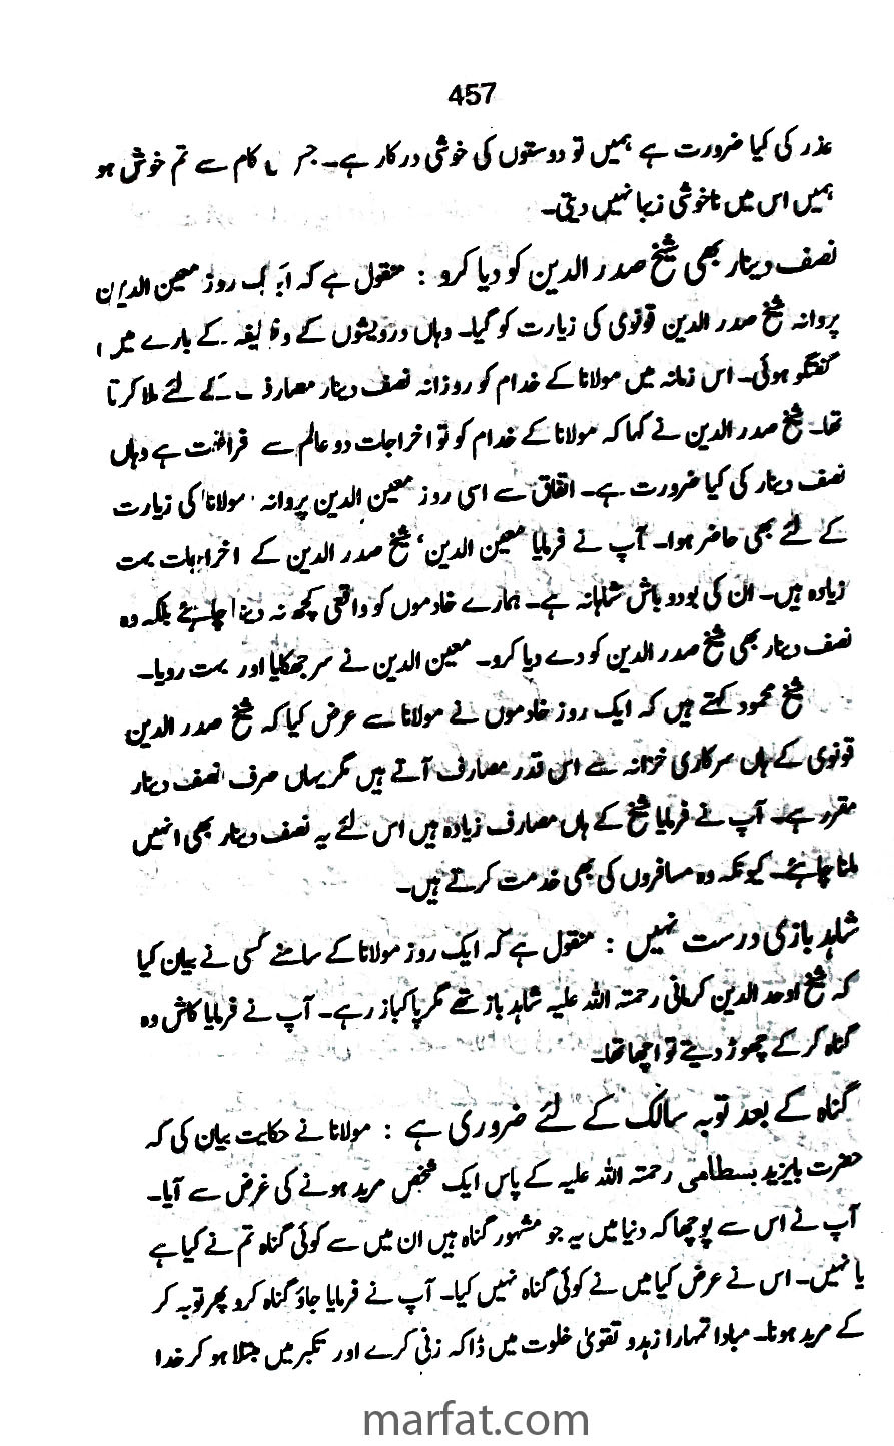 457
عذر کی کیا ضرورت ہے ہمیں تو دوستوں کی خوشی درکار ہے۔ جس کام سے تم خوش ہو
ہمیں اس میں ناخوشی زیبا نہیں دیتی۔
نصف دینار بھی شیخ صدر الدین کو دیا کرو : منقول ہے کہ ایک روز معین الدین
پروانہ شیخ صدر الدین قونوی کی زیارت کو گیا۔ وہاں درویشوں کے وظیفہ کے بارے میں
گفتگو ہوئی۔ اس زمانہ میں مولانا کے خدام کو روزانہ نصف دینار مصارف کے لئے ملا کرتا
تھا۔ شیخ صدر الدین نے کہا کہ مولانا کے خدام کو تو اخراجات دو عالم سے فراغت ہے وہاں
نصف دینار کی کیا ضرورت ہے۔ اتفاق سے اسی روز معین الدین پروانہ مولانا کی زیارت
کے لئے بھی حاضر ہوا۔ آپ نے فرمایا معین الدین، شیخ صدر الدین کے اخراجات بہت
زیادہ ہیں۔ ان کی بودوباش شاہانہ ہے۔ ہمارے خادموں کو واقعی کچھ نہ دینا چاہئے بلکہ وہ
نصف دینار بھی شیخ صدر الدین کو دے دیا کرو۔ معین الدین نے سر جھکایا اور بہت رویا۔
شیخ محمود کہتے ہیں کہ ایک روز خادموں نے مولانا سے عرض کیا کہ شیخ صدر الدین
قونوی کے ہاں سرکاری خزانہ سے اس قدر مصارف آتے ہیں مگر یہاں صرف نصف دینار
مقرر ہے۔ آپ نے فرمایا شیخ کے ہاں مصارف زیادہ ہیں اس لئے یہ نصف دینار بھی انہیں
ملنا چاہئے۔ کیونکہ وہ مسافروں کی بھی خدمت کرتے ہیں۔
شاہد بازی درست نہیں : منقول ہے کہ ایک روز مولانا کے سامنے کسی نے بیان کیا
کہ شیخ اوحد الدین کرمانی رحمتہ اللہ علیہ شاہد باز تھے مگر پاکباز رہے۔ آپ نے فرمایا کاش وہ
گناہ کر کے چھوڑ دیتے تو اچھا تھا۔
گناہ کے بعد توبہ سالک کے لئے ضروری ہے : مولانا نے حکایت بیان کی کہ
حضرت بایزید بسطامی رحمتہ اللہ علیہ کے پاس ایک شخص مرید ہونے کی غرض سے آیا۔
آپ نے اس سے پوچھا کہ دنیا میں یہ جو مشہور گناہ ہیں ان میں سے کوئی گناہ تم نے کیا ہے
یا نہیں۔ اس نے عرض کیا میں نے کوئی گناہ نہیں کیا۔ آپ نے فرمایا جاؤ گناہ کرو پھر توبہ کر
کے مرید ہونا۔ مبادا تمہارا زہد و تقویٰ خلوت میں ڈاکہ زنی کرے اور تکبر میں مبتلا ہو کر خدا
marfat.com